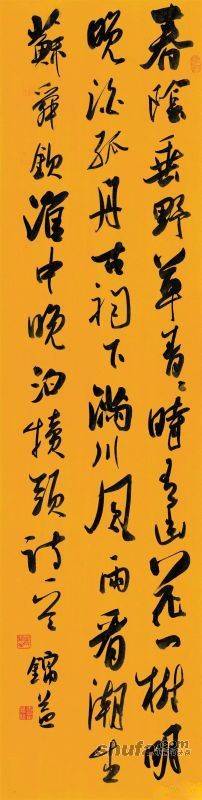 春陰垂野草青々時有幽花一樹明
晚泊孤舟古祠下滿川風雨看潮生
蘇舜欽淮中晚泊犢頭詩一首